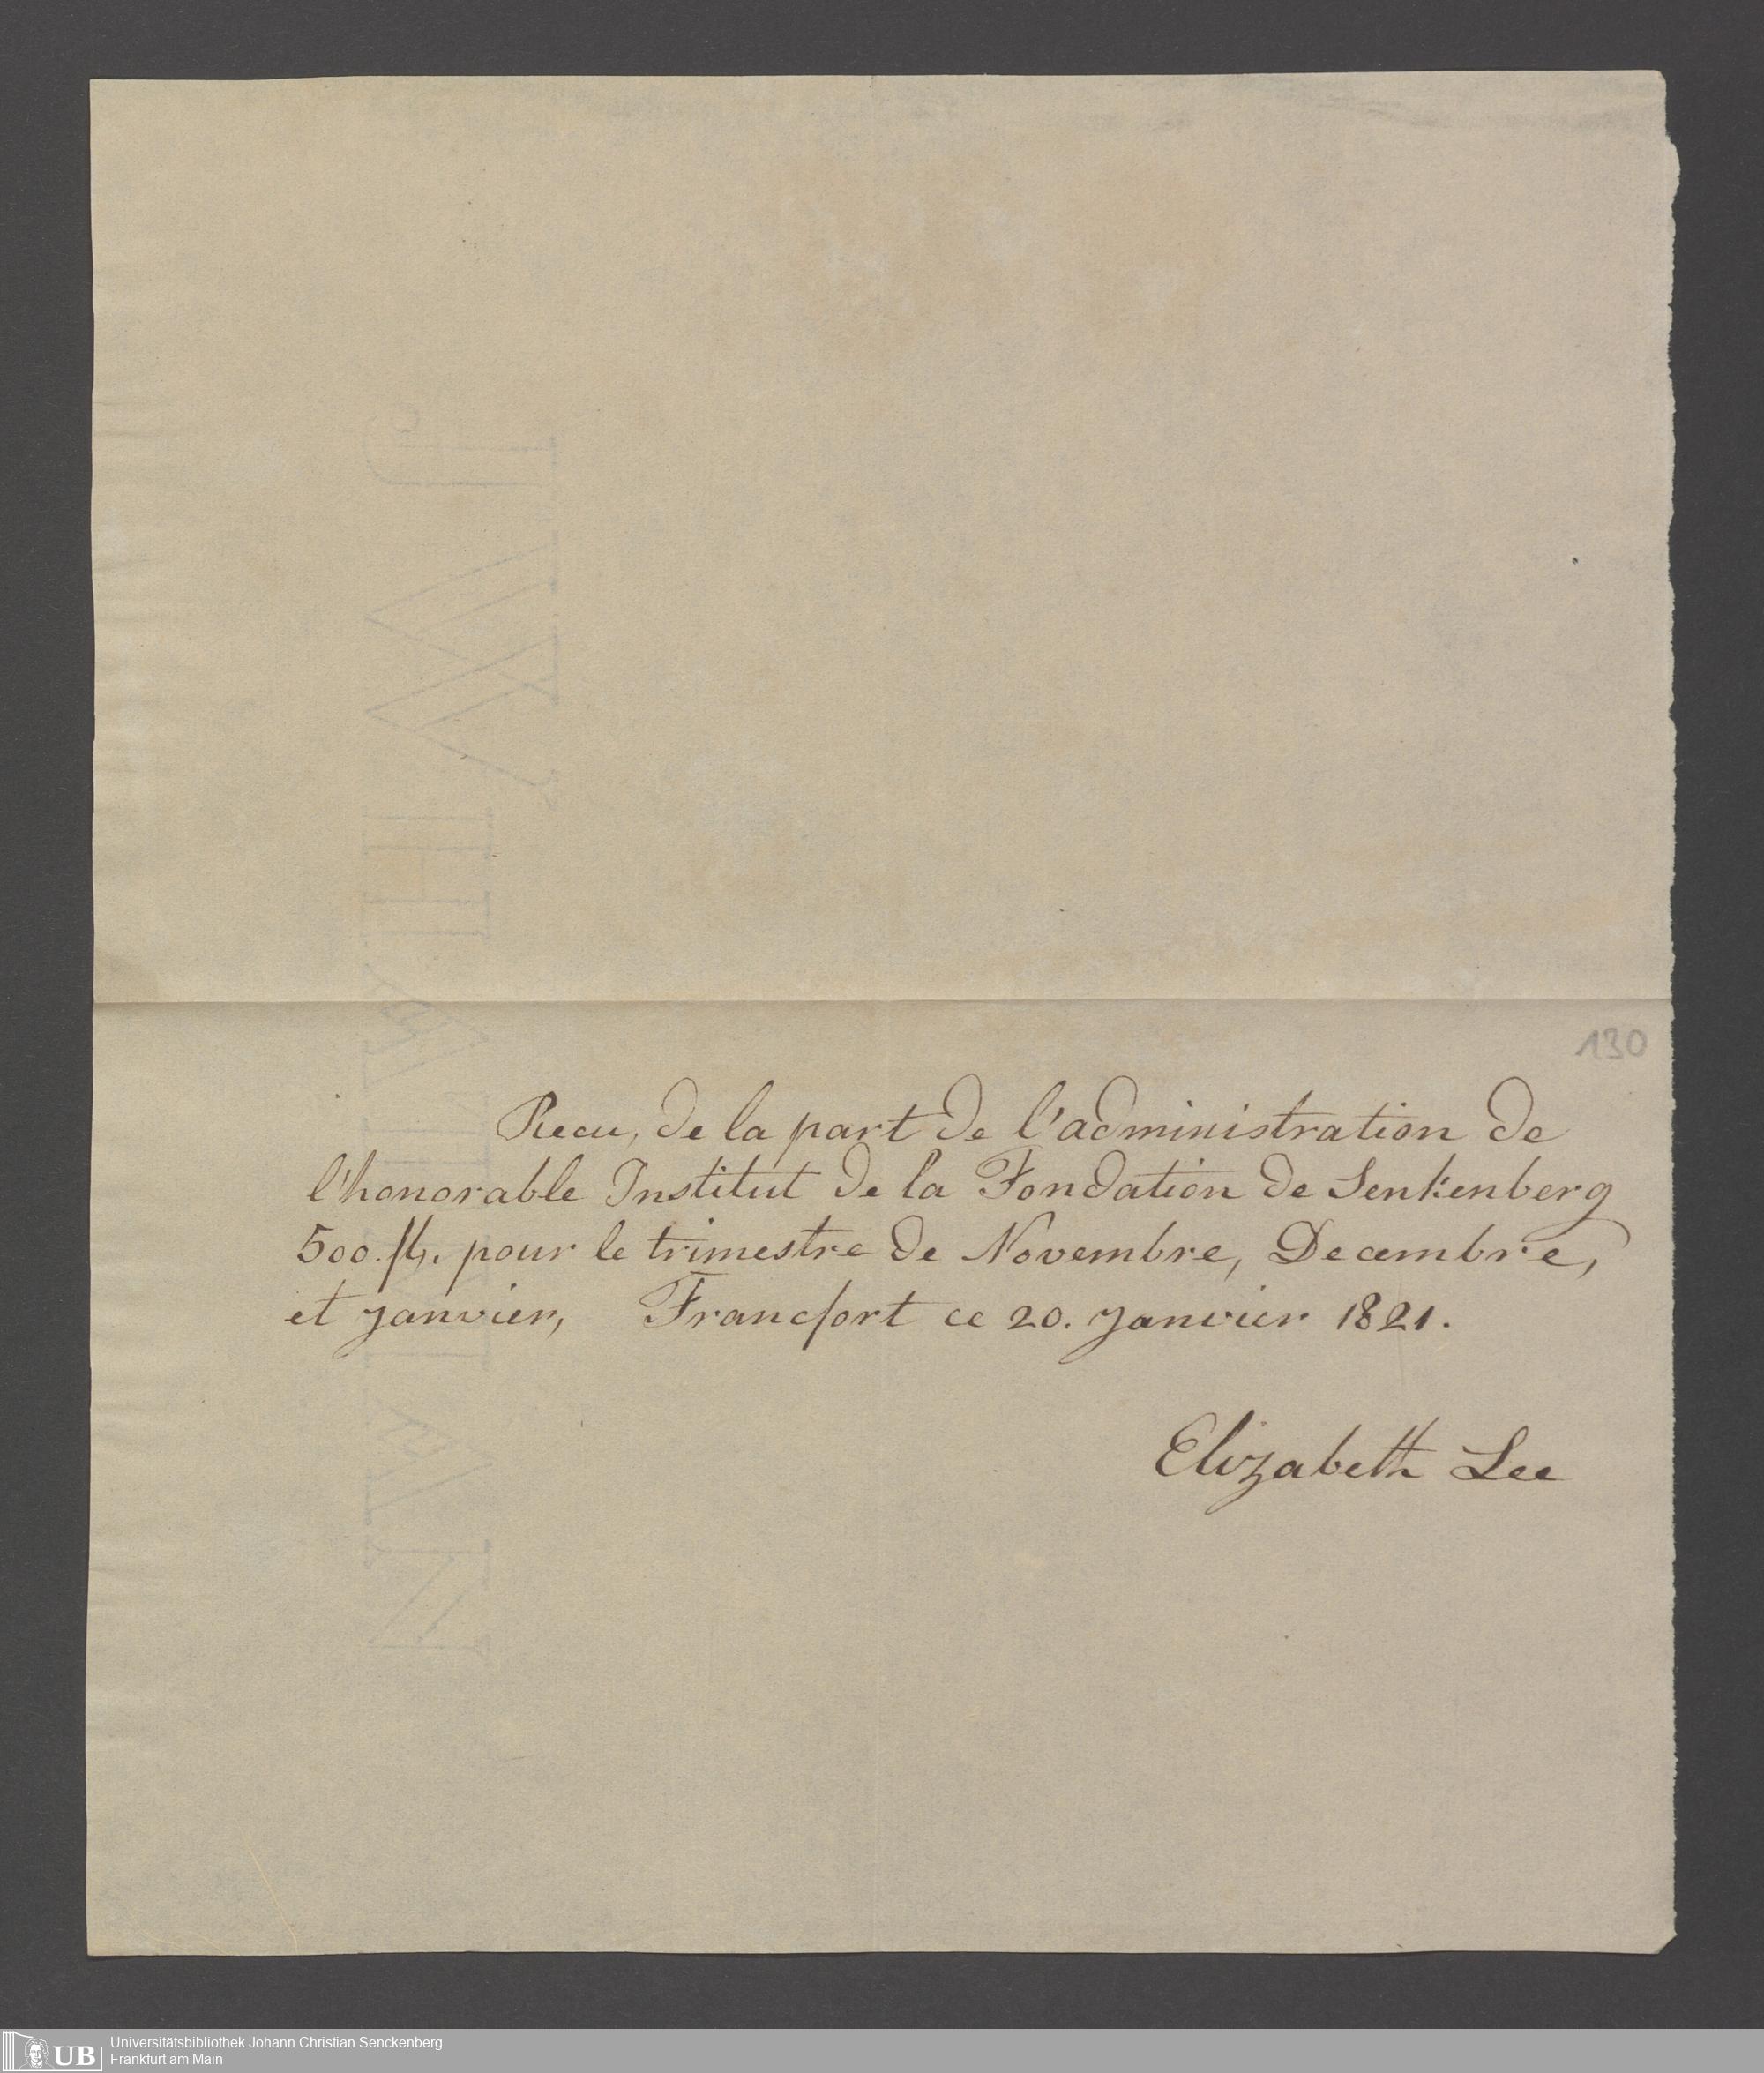 130
Recu, de la part de l'administration de
l'honorable Institut de la Fondation de Senkenberg
500. fl. pour le trimestre de Novembre, Decembre,
et Janvier, Francfort ce 20. Janvier 1821.
Elizabeth Lee
J WHATMAN
UB
Universitätsbibliothek Johann Christian Senckenberg
Frankfurt am Main